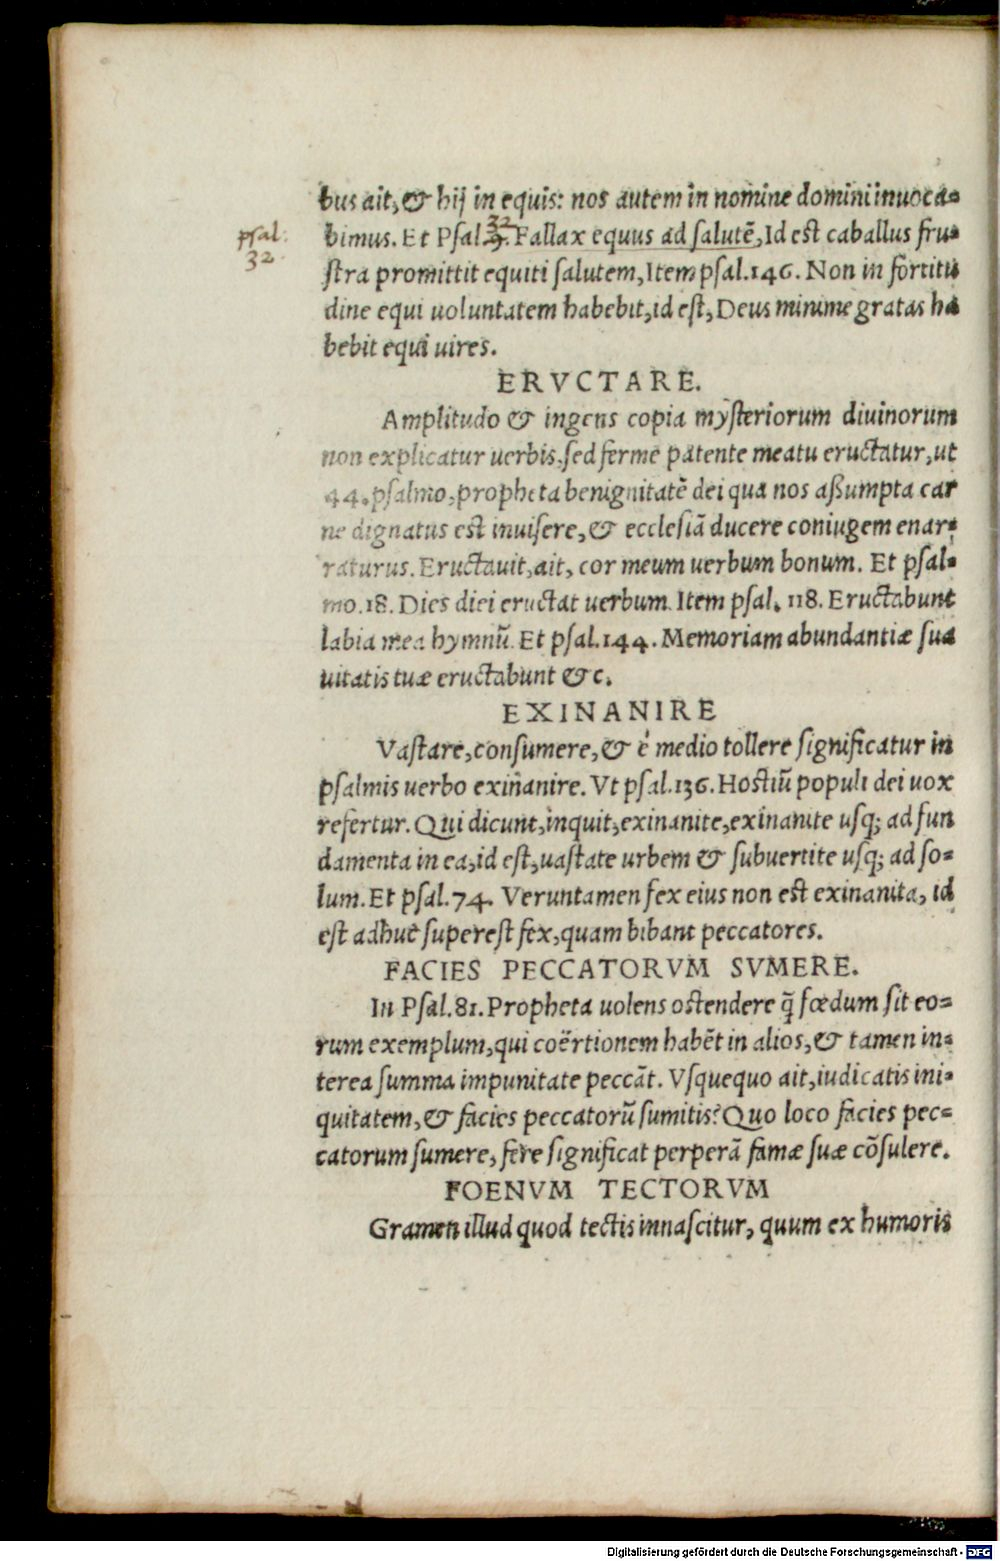 bus ait, & hij in equis: nos autem in nomine domini inuoca-
psal.
32
bimus. Et Psal. 32. Fallax equus ad salutē, Id est caballus fru-
stra promittit equiti salutem, Item psal. 146. Non in fortitu
dine equi uoluntatem habebit, id est, Deus minime gratas ha
bebit equi uires.
ERVCTARE.
Amplitudo & ingens copia mysteriorum diuinorum
non explicatur uerbis, sed ferme patente meatu eructatur, ut
44. psalmo, propheta benignitatē dei qua nos aßumpta car
ne dignatus est inuisere, & ecclesiā ducere coniugem enar-
raturus. Eructauit, ait, cor meum uerbum bonum. Et psal-
mo. 18. Dies diei eructat uerbum. Item psal. 118. Eructabunt
labia mea hymnū. Et psal. 144. Memoriam abundantiæ sua
uitatis tuæ eructabunt &c.
EXINANIRE
Vastare, consumere, & è medio tollere significatur in
psalmis uerbo exinanire. Vt psal. 136. Hostiū populi dei uox
refertur. Qui dicunt, inquit, exinanite, exinanite usq; ad fun
damenta in ea, id est, uastate urbem & subuertite usq; ad so-
lum. Et psal. 74. Veruntamen fex eius non est exinanita, id
est adhuc superest fex, quam bibant peccatores.
FACIES PECCATORVM SVMERE.
In Psal. 81. Propheta uolens ostendere q̄ fœdum sit eo-
rum exemplum, qui coërtionem habēt in alios, & tamen in-
terea summa impunitate peccāt. Vsquequo ait, iudicatis ini-
quitatem, & facies peccatorū sumitis? Quo loco facies pec-
catorum sumere, fere significat perperā famæ suæ cōsulere.
FOENVM TECTORVM
Gramen illud quod tectis innascitur, quum ex humoris
Digitalisierung gefördert durch die Deutsche Forschungsgemeinschaft - DFG